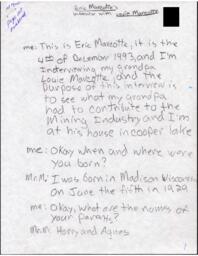 Eric Marcotte's
interview with Louie Marcotte
me: This is Eric Marcotte, it is the
4th of December 1993, and I'm
Interviewing my grandpa
Louie Marcotte, and the
purpose of this interview is
to see what my grandpa
had to contribute to the
Mining Industry and I'm
at his house in cooper lake
me: Okay when and where were
you born?
Mr.M: I was born in Madison Wisconsin
on June the fifth in 1929
me: Okay, what are the names of
your parents?
Mr.M: Harry and Agnes
1